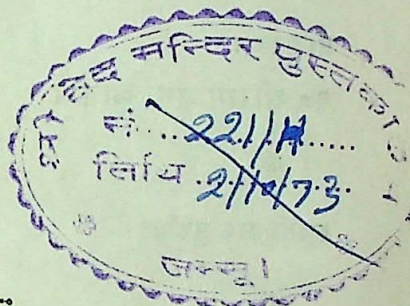 वेद मन्दिर पुस्तकालय
नं.....221/H.....
तिथि.2/10/73.
जम्मू।